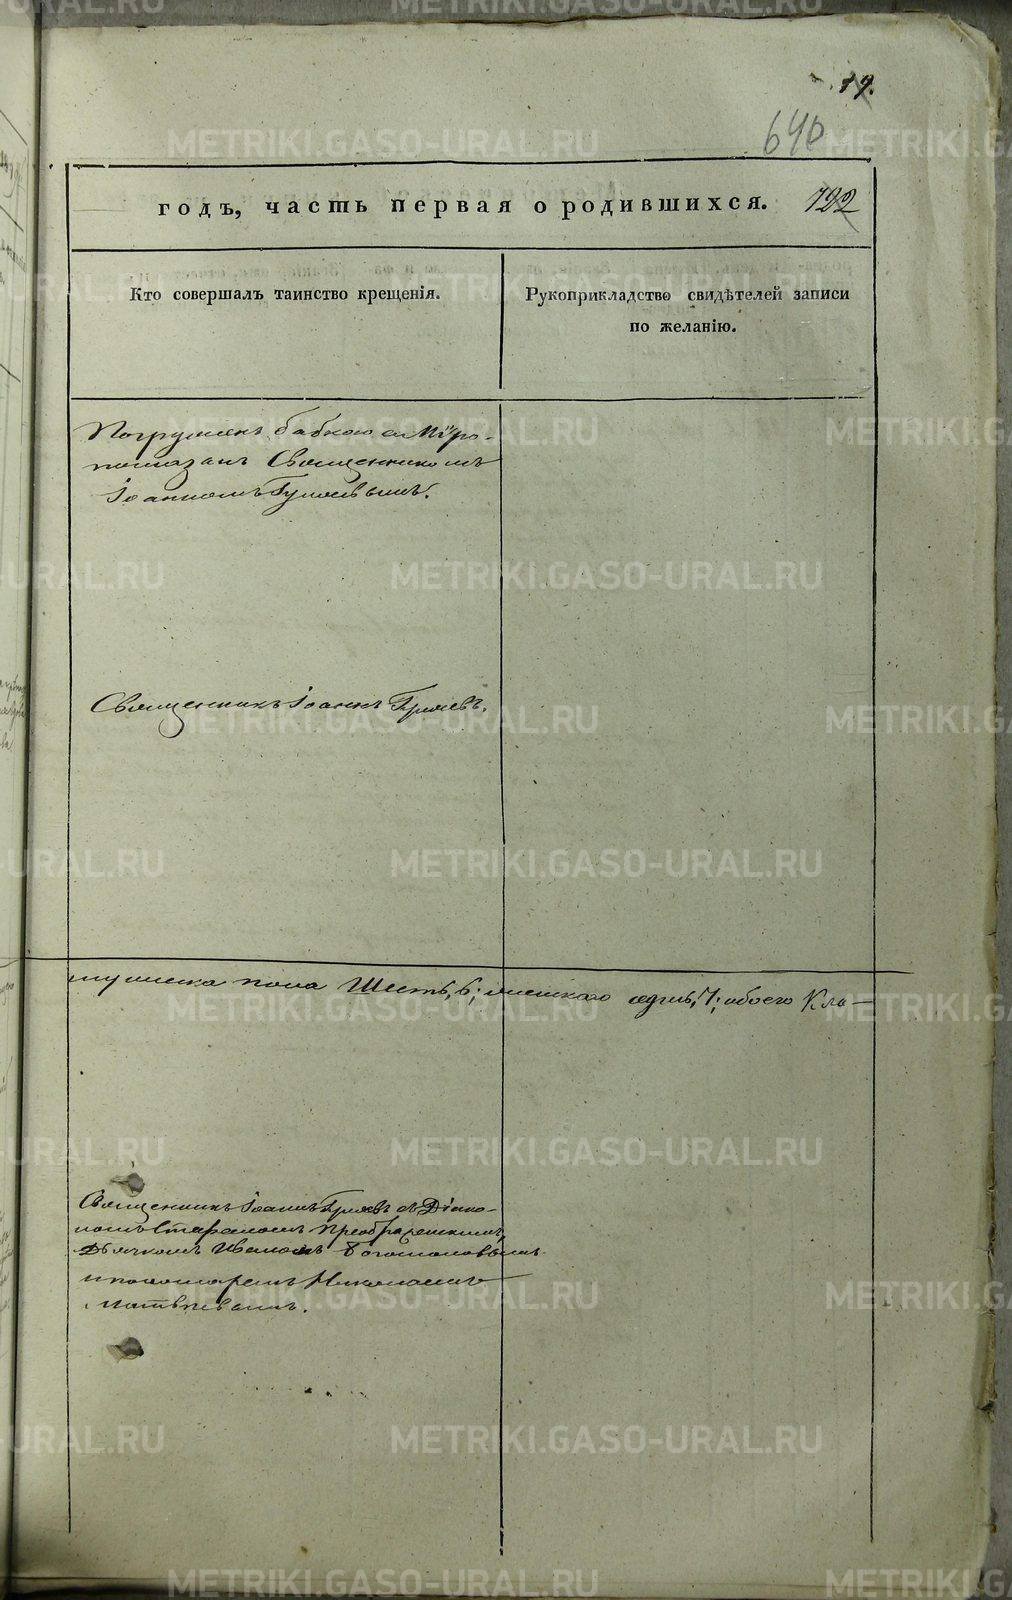 19.
640
годъ, часть первая о родившихся. 122
Кто совершалъ таинство крещенія.
Рукоприкладство свидѣтелей записи
по желанію.
Погруженъ бабкою а Мѵро-
помазанъ Священникомъ
Іоанномъ
Священникъ Іоаннъ
мужеска пола Шесть, 6; женскаго одинъ, 1; обоего
Священникъ Іоаннъ съ Діако-
номъ Стефаномъ Преображенскимъ,
Дьячкомъ Иваномъ Богомоловымъ
и пономаремъ Николаемъ
METRIKI.GASO-URAL.RU